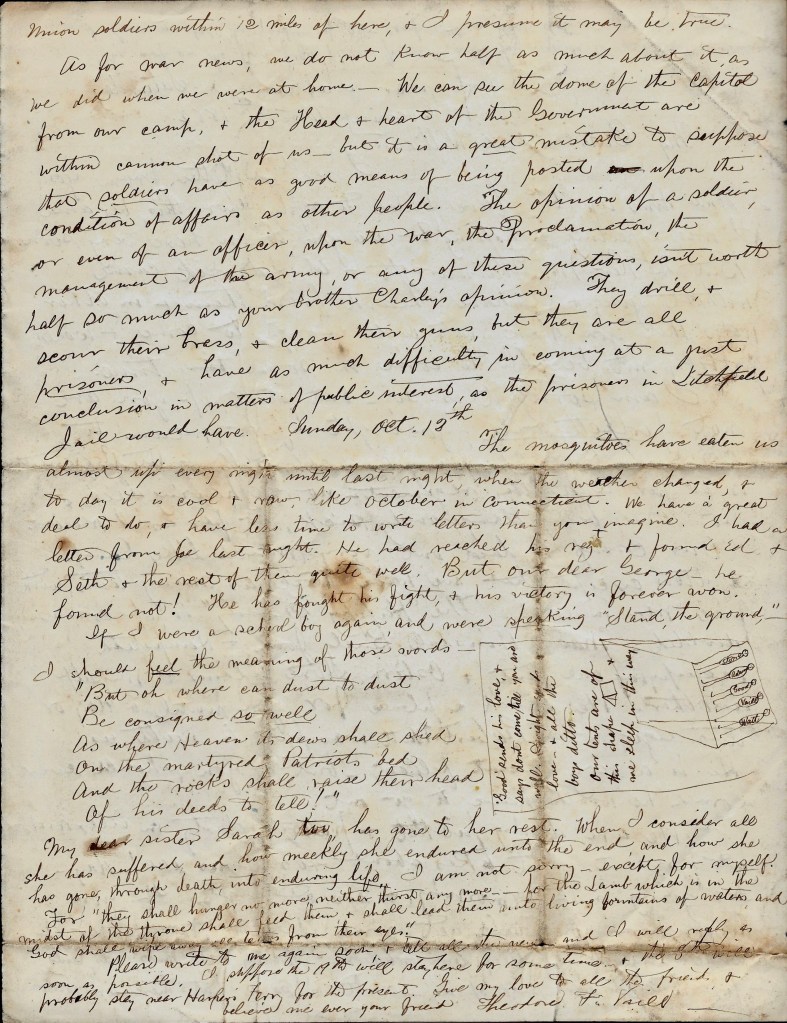 Union soldiers within 12 miles of here, & I presume it may be true.
As for war news, we do not know half as much about it, as
we did when we were at home. — We can see the dome of the Capitol
from our camp, & the Head & heart of the Government are
within cannon shot of us — but it is a great mistake to suppose
that soldiers have as good means of being posted upon the
condition of affairs as other people. The opinion of a soldier,
or even of an officer, upon the war, the Proclamation, the
management of the army, or any of these questions, isnt worth
half so much as your brother Charley's opinion. They drill, &
scour their brass, & clean their guns, but they are all
prisoners, & have as much difficulty in coming at a just
conclusion in matters of public interest, as the prisoners in Litchfield
Jail would have. Sunday, Oct. 12th
The mosquitoes have eaten us
almost up every night until last night, when the weather changed, &
to day it is cool & raw, like October in Connecticut. We have a great
deal to do, & have less time to write letters than you imagine. I had a
letter from Joe last night. He had reached his reg. & found Ed &
Seth & the rest of them quite well. But our dear George — he
found not! He has fought his fight, & his victory is forever won.
If I were a school boy again, and were speaking "Stand, the ground, —
I should feel the meaning of those words —
"But oh where can dust to dust
Be consigned so well
As where Heaven its dews shall shed
On the martyred Patriots bed
And the rocks shall raise their head
Of his deeds to tell!"
"Good sends his love, &
says dont come, till you are
well.
love — & all the
boys ditto.
Our tents are of
this shape &
we sleep in this way
Good
Vaill
My dear sister Sarah too has gone to her rest. When I consider all
she has suffered, and how meekly she endured unto the end and how she
has gone, through death, into enduring life, I am not sorry — except for myself.
For "they shall hunger no more, neither thirst any more — for the Lamb which is in the
midst of the throne shall feed them & shall lead them unto living fountains of waters, and
God shall wipe away all tears from their eyes."
Please write to me again soon & tell all the news and I will reply as
soon as possible. I suppose the 19th will stay here for some time — & the 8th will
probably stay near Harpers Ferry for the present. Give my love to all the friends &
believe me ever your friend Theodore F. Vaill